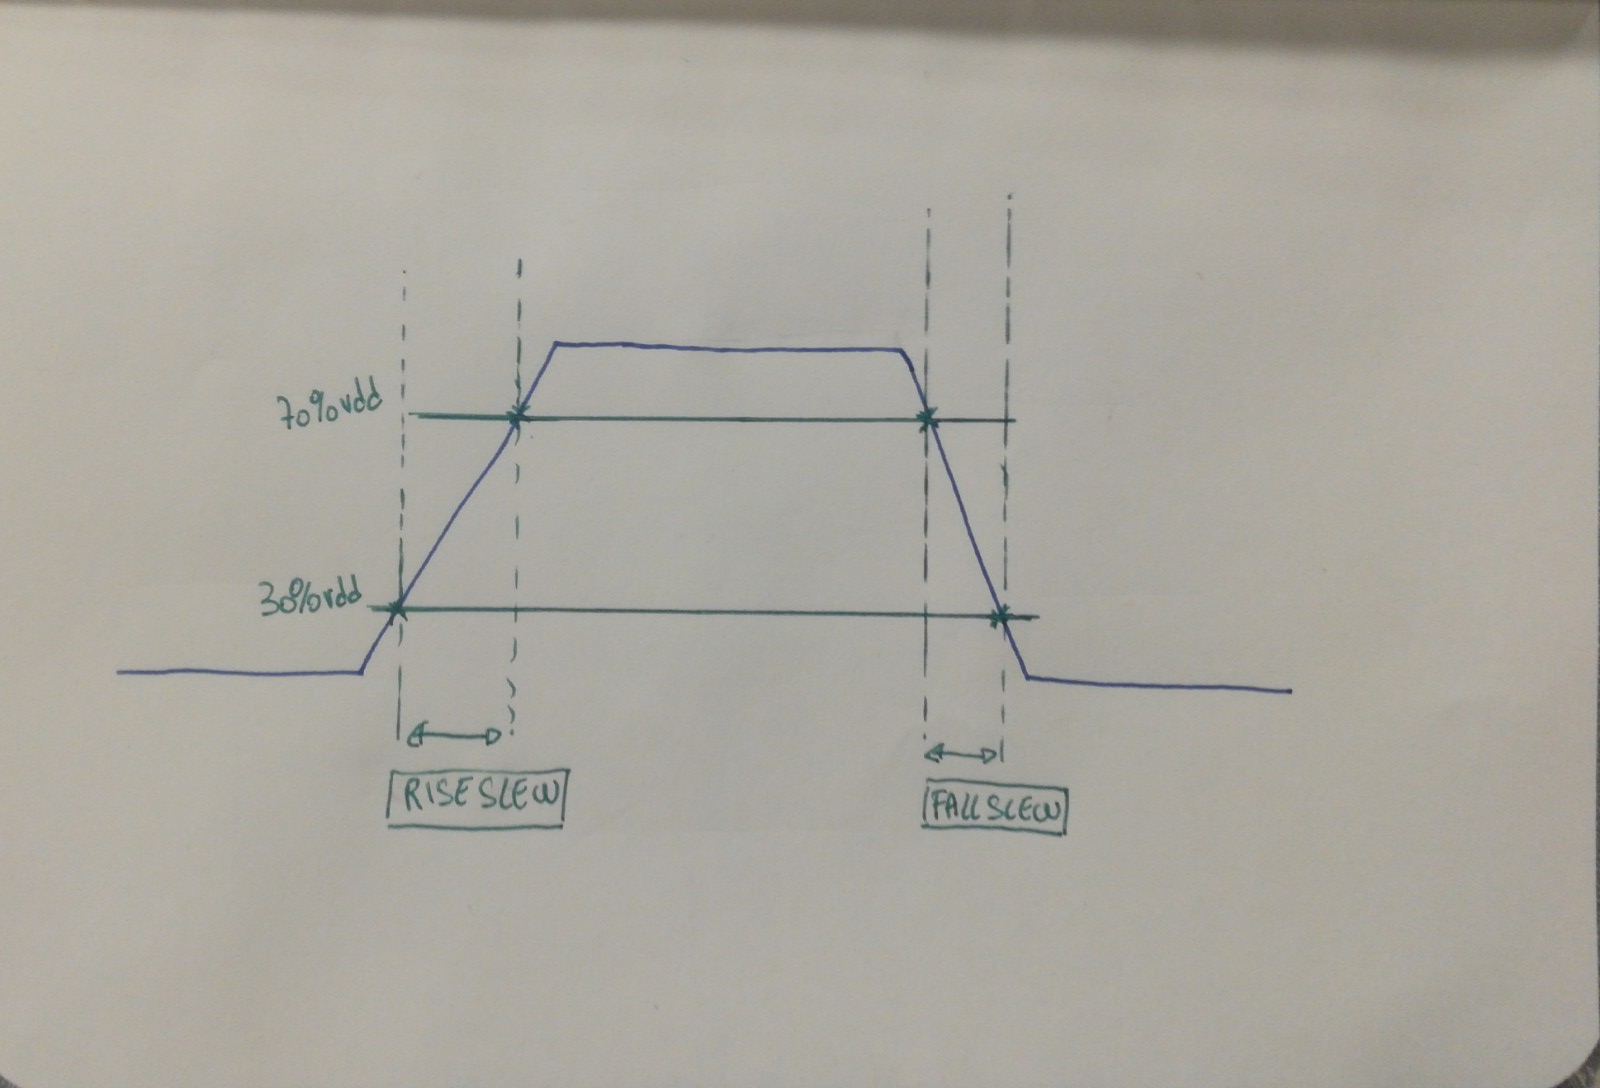 70%vdd
30%vdd
RISE SLEW
FALL SLEW